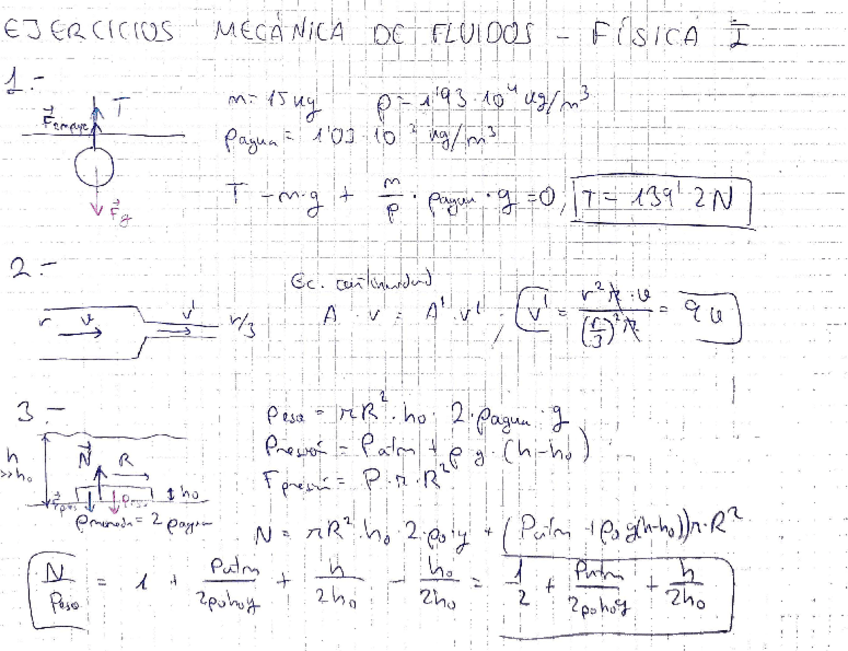 EJERCICIOS MECÁNICA DE FLUIDOS - FÍSICA I
1.-
T
F⃗empuje
F⃗g
m = 15 kg   ρ = 1'93·10⁴ kg/m³
ρagua = 1'03·10³ kg/m³
T - m·g + m/ρ · ρagua · g = 0, T = 139'2 N
2.-
Ec. continuidad
r v v' r/3
A v = A' v', v' = r²π·v / (r/3)²π = 9v
3.-
h >> h₀
N⃗ R h₀
ρmoneda = 2 ρagua
Peso = πR²·h₀·2·ρagua·g
Presión = Patm + ρ g·(h-h₀)
Fpresión = P·π·R²
N = πR²·h₀·2·ρ₀·g + (Patm + ρ₀g(h-h₀))π·R²
N/Peso = 1 + Patm/2ρ₀h₀g + h/2h₀ - h₀/2h₀ = 1/2 + Patm/2ρ₀h₀g + h/2h₀